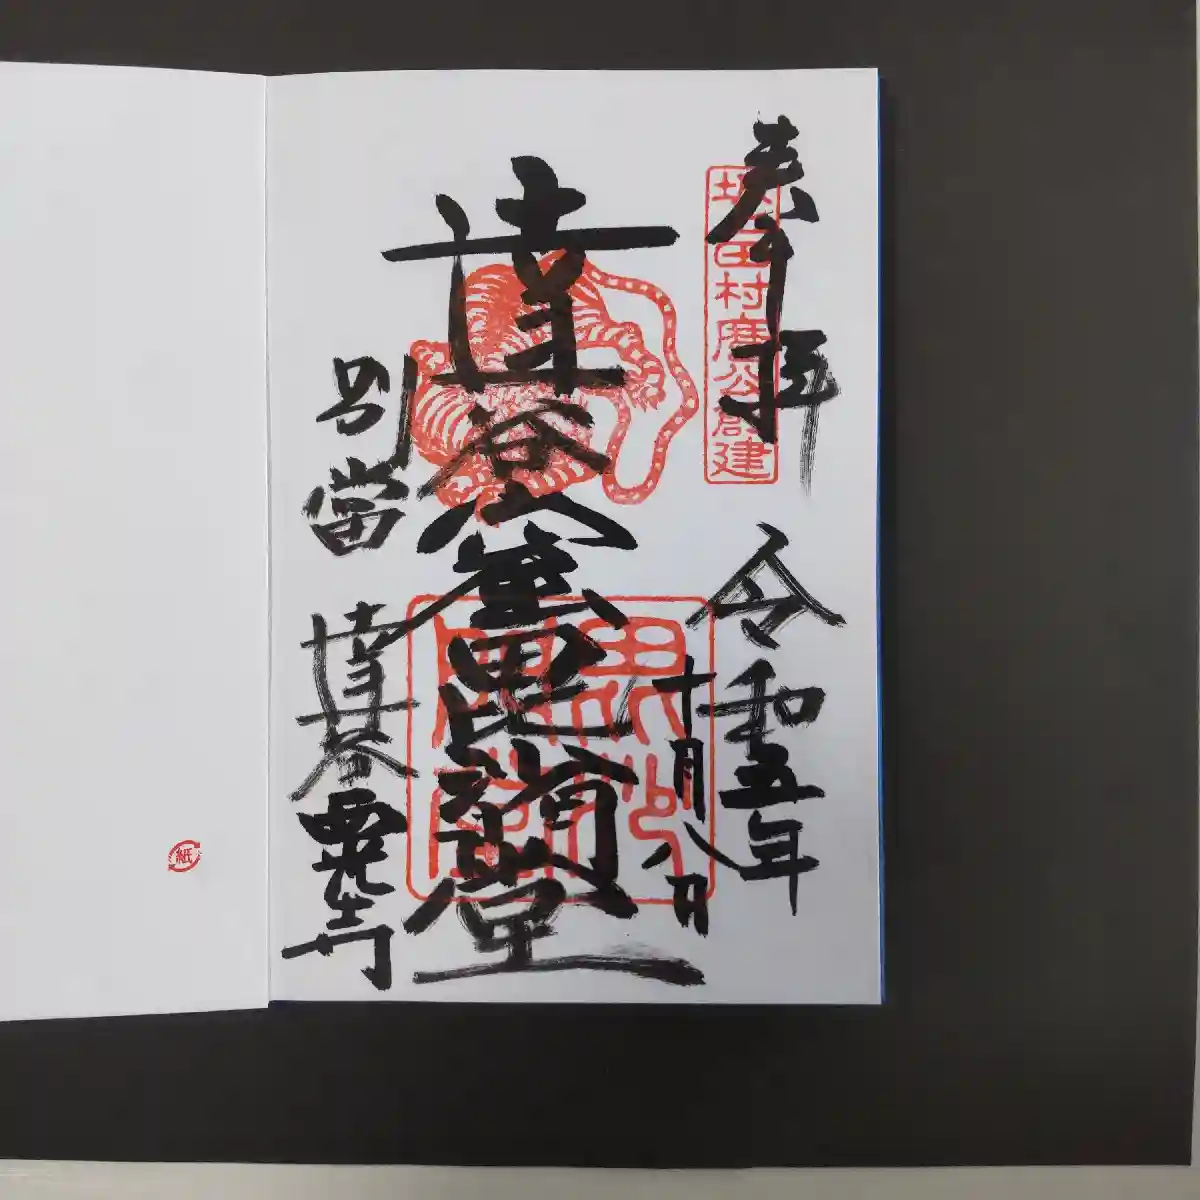 奉拝
坂上田村麿公創建
令和五年
十月八日
達谷窟毘沙門堂
別當
達谷西光寺
紙